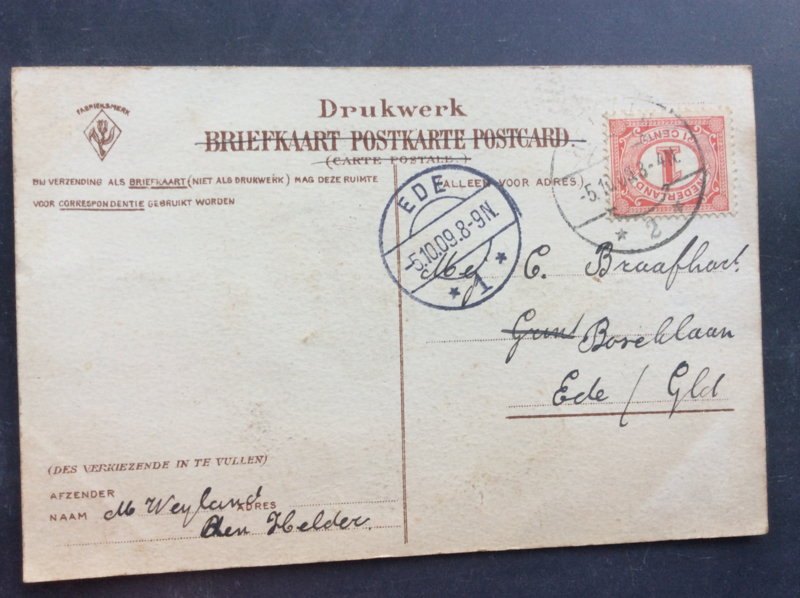 FABRIEKSMERK
Drukwerk
BRIEFKAART POSTKARTE POSTCARD.
(CARTE POSTALE.)
BIJ VERZENDING ALS BRIEFKAART (NIET ALS DRUKWERK) MAG DEZE RUIMTE
VOOR CORRESPONDENTIE GEBRUIKT WORDEN
(ALLEEN VOOR ADRES.)
NEDERLAND
1
1 CENT
-5.10.09.8-4N.
2
EDE
-5.10.09.8-9N.
1
Mej C. Braafhart
Boschlaan
Ede / Gld
(DES VERKIEZENDE IN TE VULLEN)
AFZENDER
NAAM M Weyland ADRES
den Helder